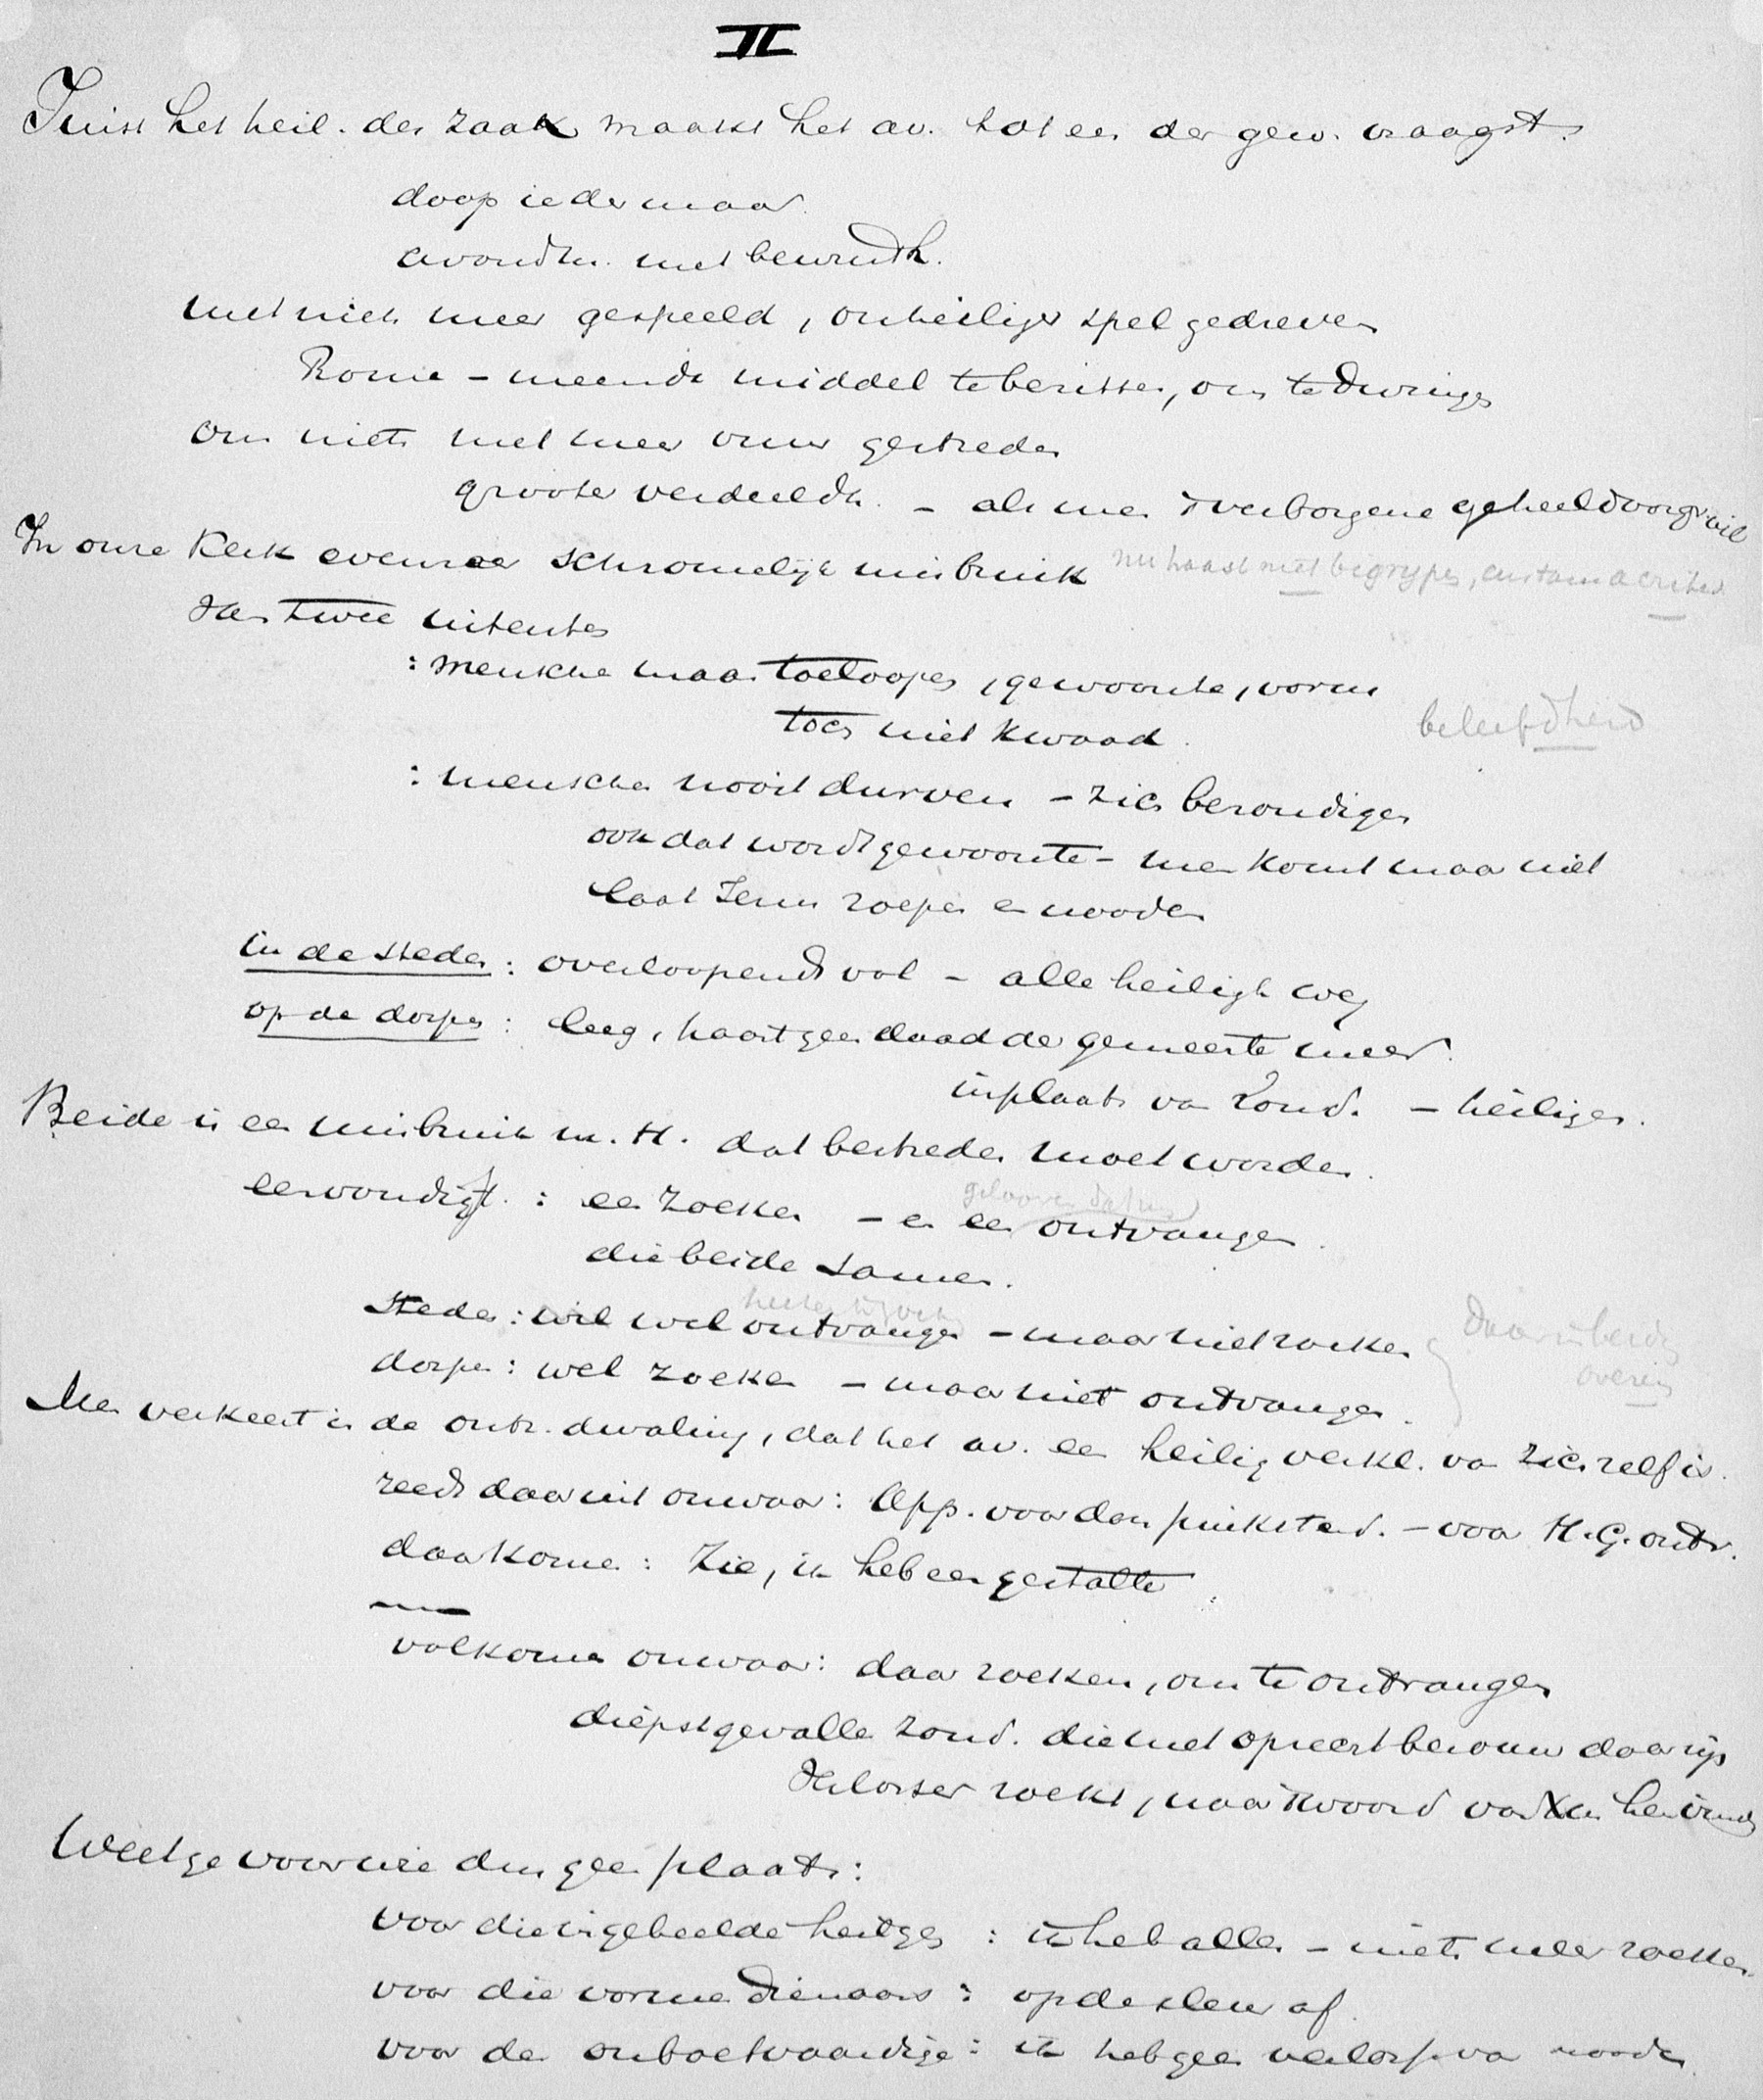 II
Juist het heil. der zaak maakt het av. tot een der gew. vraagst.
doop ieder maar.
avondm. met bewusth.
met niets meer gespeeld, onheiliger spel gedreven
Rome – meende middel te bezitten, om te dwingen
om niets met meer vuur gestreden
groote verdeeldh. – als men 't verborgene geheel doorgr. wil
In onze Kerk evenzeer schromelijk misbruik nu haast niet begrijpen,
den twee uitersten
: menschen maar toeloopen, gewoonte, vorm
toch niet kwaad. beleefdheid
: menschen nooit durven – zich bezondigen
ook dat wordt gewoonte – men komt maar niet
laat Jezus roepen en nooden
in de steden : overloopend vol – alle heiligh. weg
op de dorpen : leeg, haast geen daad der gemeente meer.
inplaats van zond. – heiligen.
Beide is een misbruik m. H. dat bestreden moet worden.
eenvoudigst. : een zoeken – en een ontvangen.
gelooven dat men
die beide samen.
Steden : wil wel ontvangen – maar niet zoeken
dorpen : wel zoeken – maar niet ontvangen.
Daarin beide
overeen
Men verkeert in de ontz. dwaling, dat het av. een heilig verkl. van zich zelf is.
reeds daaruit onwaar : App. voor den pinksterd. – voor H. G. ontv.
daar komen : Zie, ik heb een gestalte.
volkomen onwaar : daar zoeken, om te ontvangen
diepst gevallen zond. die met oprecht berouw daar zijn
Verlosser zoekt, naar 't woord van
Weet ge voor wie dus geen plaats :
voor die ingebeelde heiligen : ik heb alles – niets meer zoeken.
voor die vormendienaars : op de sleur af.
voor den onboetvaardige : ik heb geen verloss. van noode.